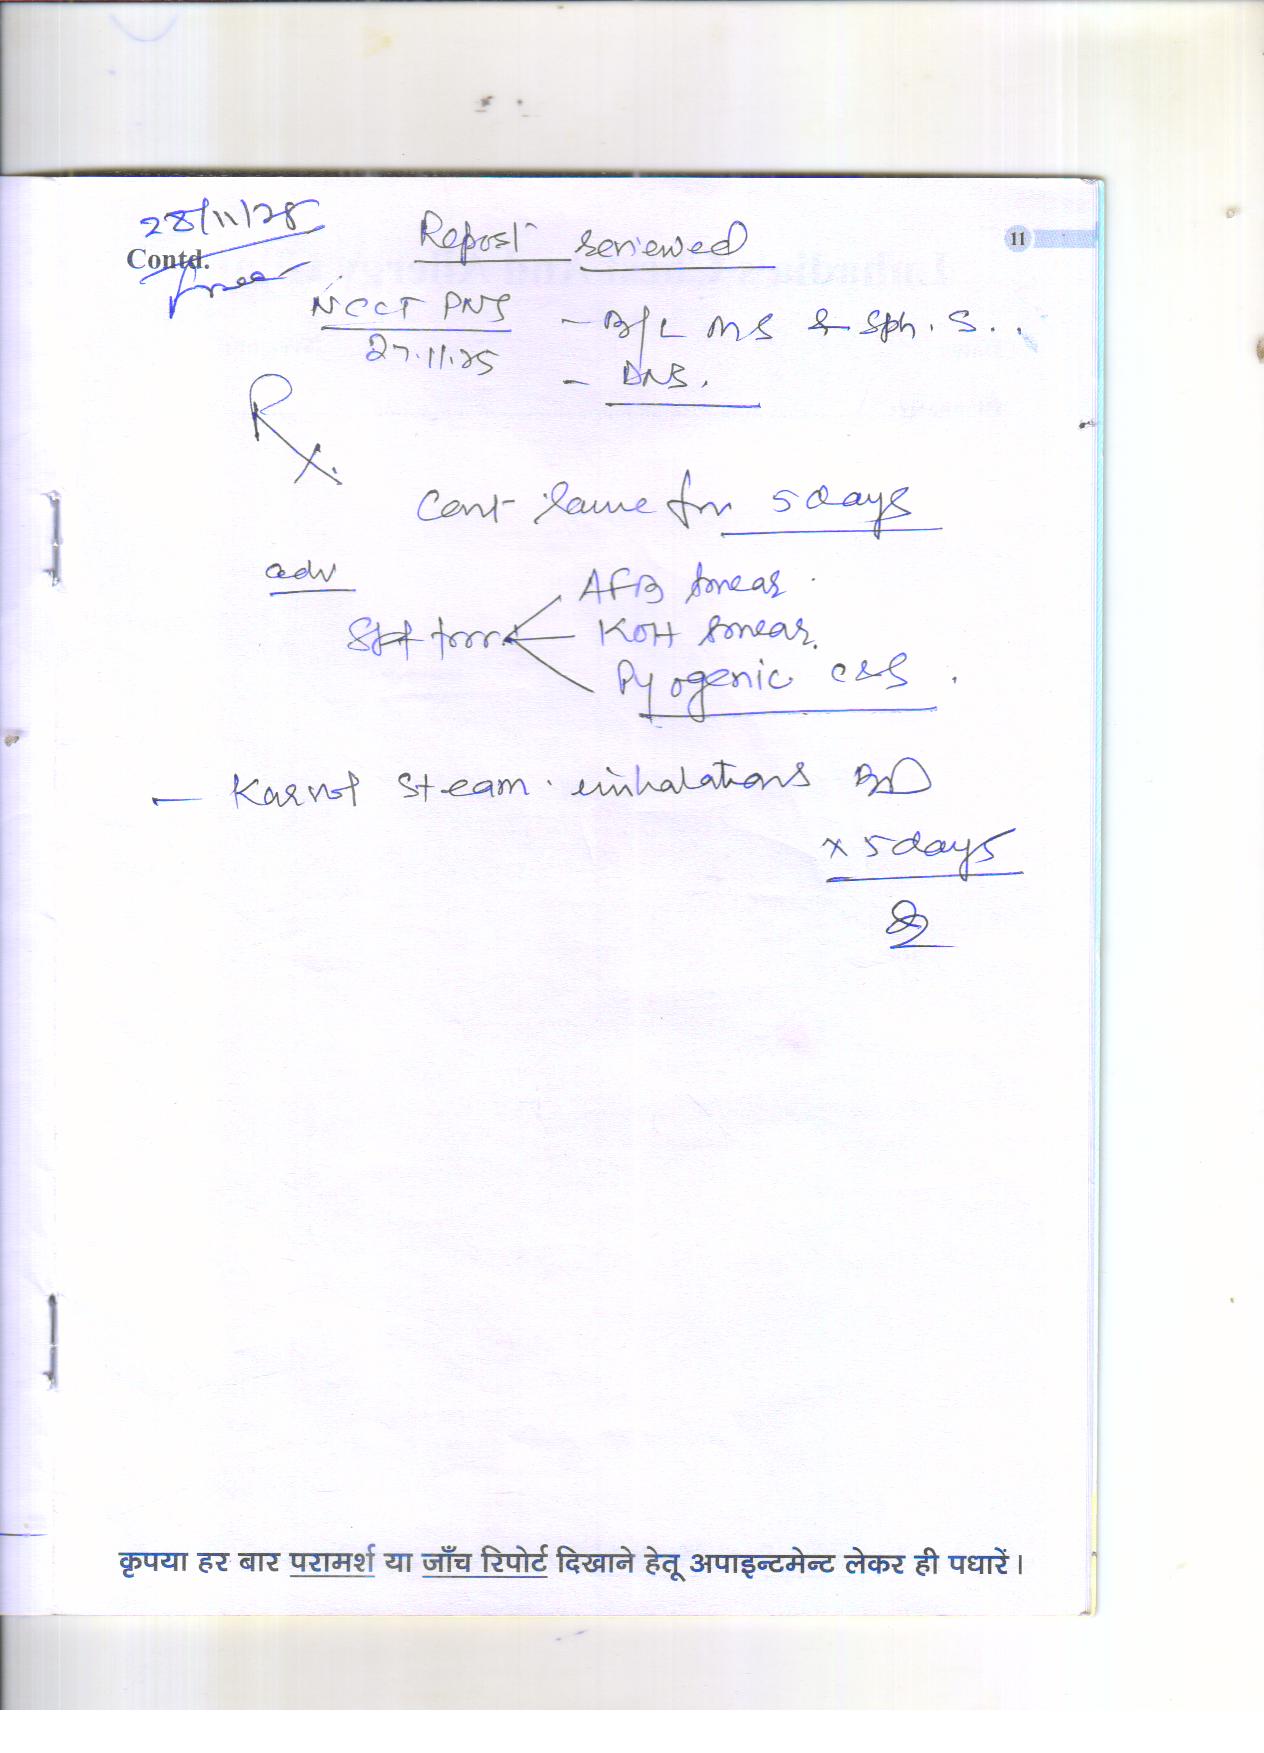 28/11/25
Report reviewed
11
Contd.
free
NCCT PNS - B/L MS & Sph. S..
27.11.25
- DNS.
Rx.
Cont same for 5 days
adv
AFB smear.
KOH smear.
Pyogenic C&S.
- Karvol steam inhalations BD
x 5 days
कृपया हर बार परामर्श या जाँच रिपोर्ट दिखाने हेतू अपाइन्टमेन्ट लेकर ही पधारें।